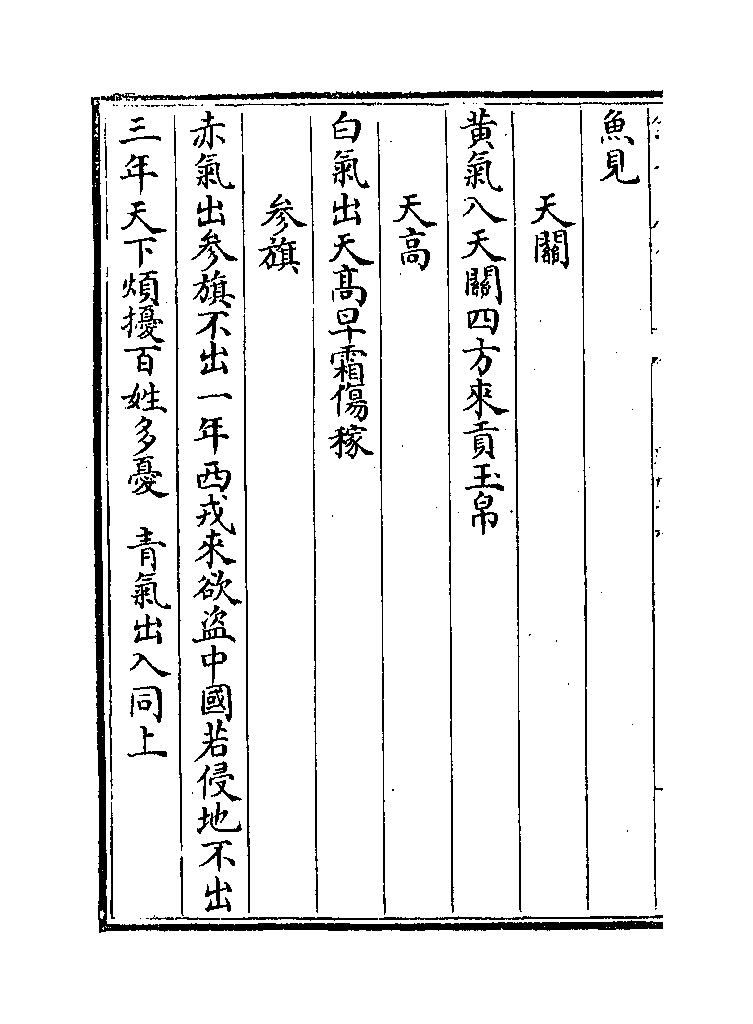 魚見
天關
黃氣入天關四方來貢玉帛
天高
白氣出天高早霜傷稼
參旗
赤氣出參旗不出一年西戎來欲盜中國若侵地不出
三年天下煩擾百姓多憂　青氣出入同上